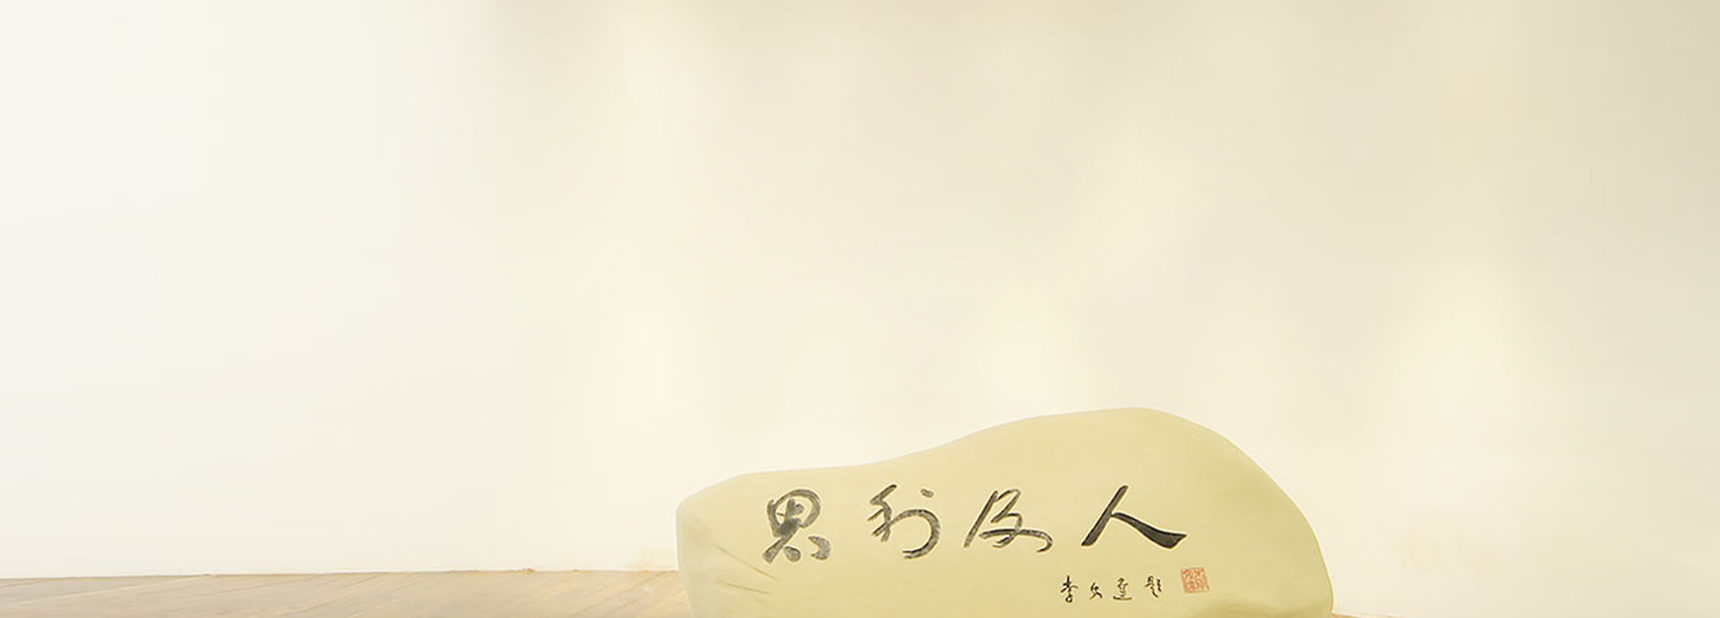 思利及人
李文達題